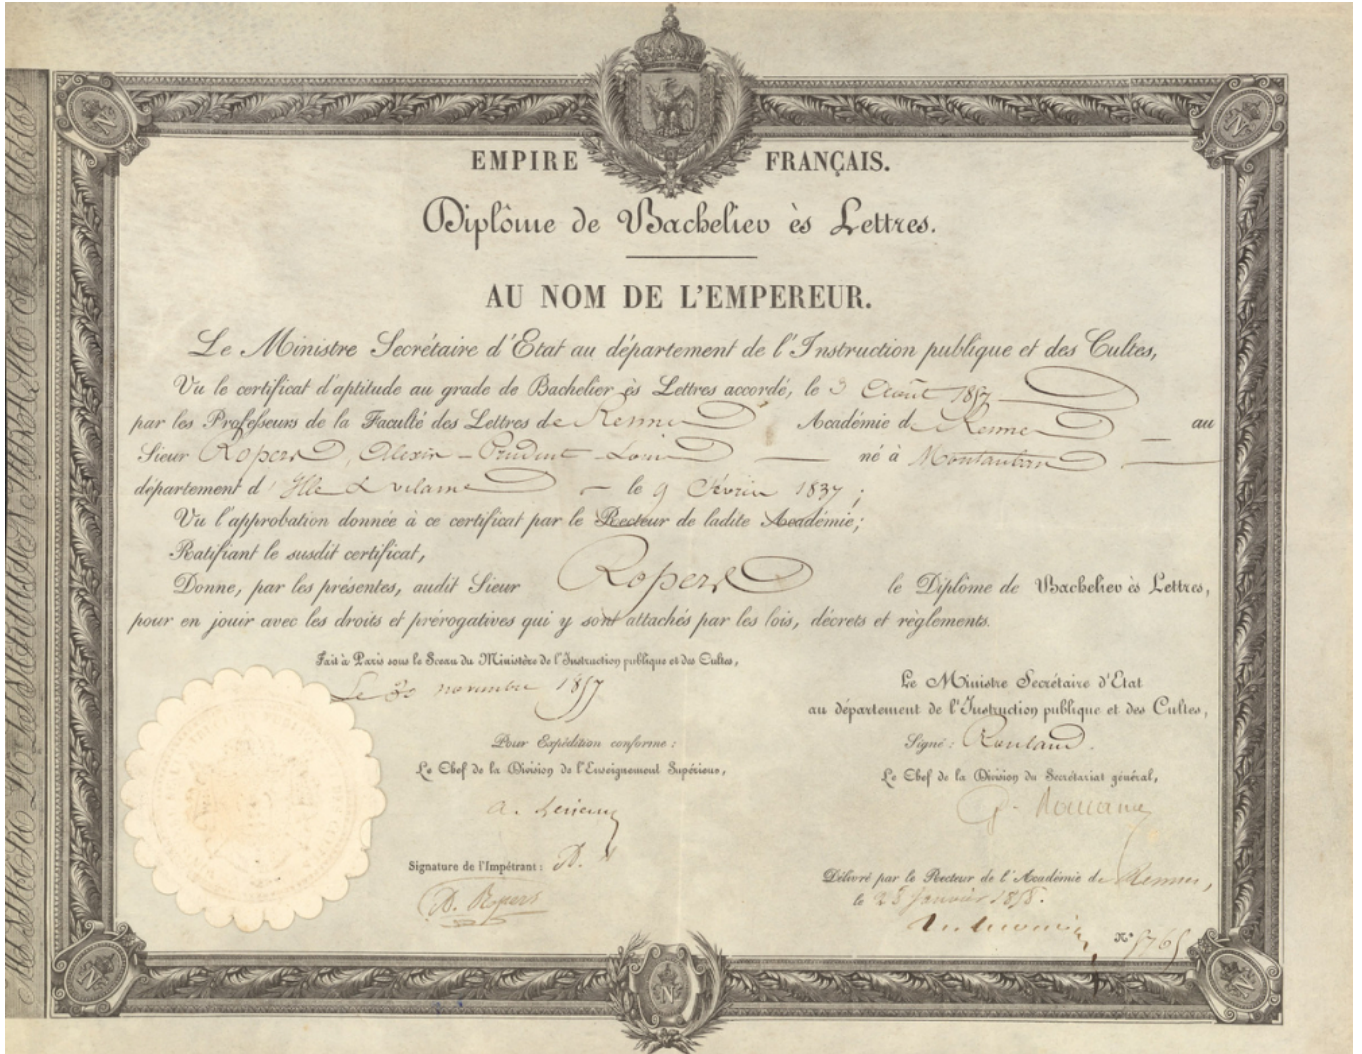 EMPIRE FRANÇAIS.
Diplôme de Bachelier ès Lettres.
AU NOM DE L'EMPEREUR.
Le Ministre Secrétaire d'Etat au département de l'Instruction publique et des Cultes,
Vu le certificat d'aptitude au grade de Bachelier ès Lettres accordé, le 3 Août 1857
par les Professeurs de la Faculté des Lettres de Rennes Académie de Rennes au
Sieur Ropers, Alexis - Prudent - Louis né à Montauban
département d'Ille & vilaine le 9 Février 1837;
Vu l'approbation donnée à ce certificat par le Recteur de ladite Académie;
Ratifiant le susdit certificat,
Donne, par les présentes, audit Sieur Ropers le Diplôme de Bachelier ès Lettres,
pour en jouir avec les droits et prérogatives qui y sont attachés par les lois, décrets et règlements.
Fait à Paris sous le Sceau du Ministère de l'Instruction publique et des Cultes,
Le 30 novembre 1857
Pour Expédition conforme:
Le Chef de la Division de l'Enseignement Supérieur,
Signature de l'Impétrant:
A. Ropers
Le Ministre Secrétaire d'Etat
au département de l'Instruction publique et des Cultes,
Signé: Rouland.
Le Chef de la Division du Secrétariat général,
Délivré par le Recteur de l'Académie de Rennes,
le 25 janvier 1858.
N° 5765
N
N
N
N
N